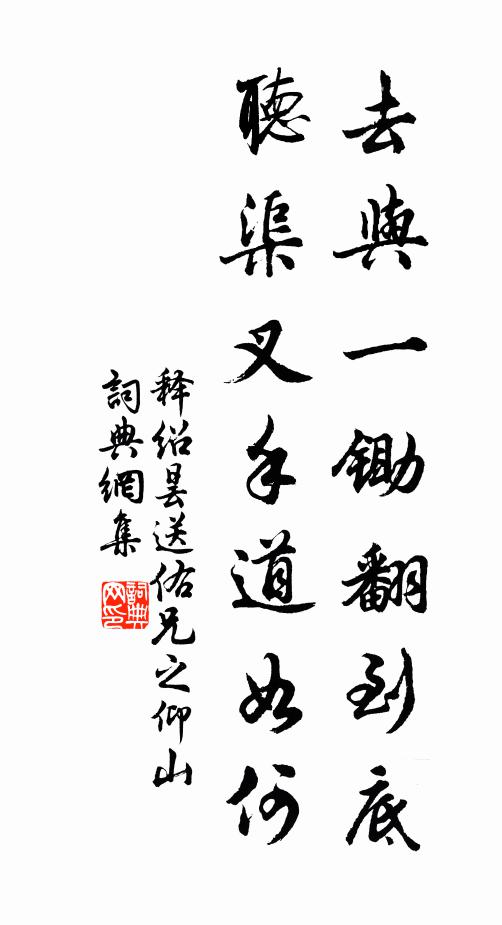 去與一鋤翻到底
聽渠叉手道如何
释紹曇送佑兄之仰山
詞典網集
詞典网印